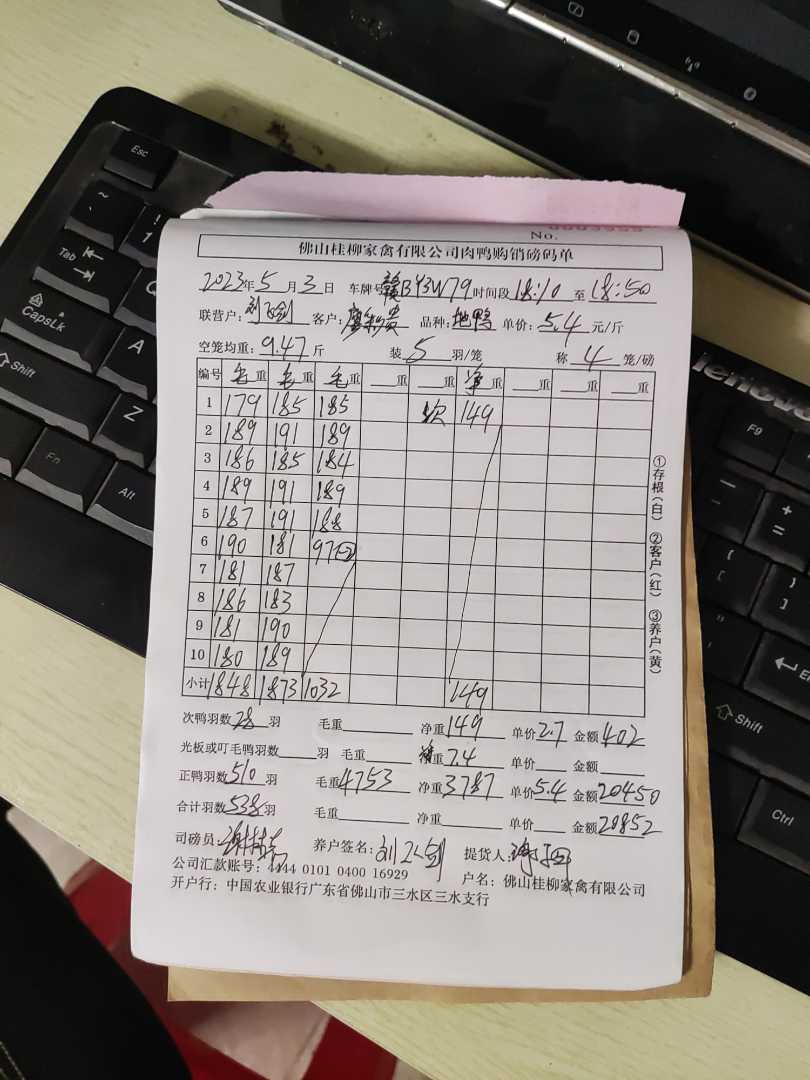 Esc
~
!
1
Tab
CapsLk
A
Shift
Fn
Alt
lenovo
F9
+
=
{
[
}
]
Enter
Shift
Ctrl
No.
佛山桂柳家禽有限公司肉鸭购销磅码单
2023年5月3日 车牌号赣BY3W79时间段18:10至18:50
联营户: 客户: 品种:地鸭 单价:5.4元/斤
空笼均重:9.47斤 装5羽/笼 称4笼/磅
编号 毛重 毛重 毛重 重 重 净重 重 重 重
1 179 185 185 次 149
2 189 191 189
3 186 185 184
4 189 191 189
5 187 191 188
6 190 181 97
7 181 187
8 186 183
9 181 190
10 180 189
小计 1848 1873 1032 149
①存根(白) ②客户(红) ③养户(黄)
次鸭羽数28羽 毛重 净重149 单价2.7 金额402
光板或叮毛鸭羽数 羽 毛重 重7.4 单价 金额
正鸭羽数510羽 毛重4753 净重3787 单价5.4 金额20450
合计羽数538羽 毛重 净重 单价 金额20852
司磅员: 养户签名: 提货人:
公司汇款账号:4444 0101 0400 16929 户名:佛山桂柳家禽有限公司
开户行:中国农业银行广东省佛山市三水区三水支行